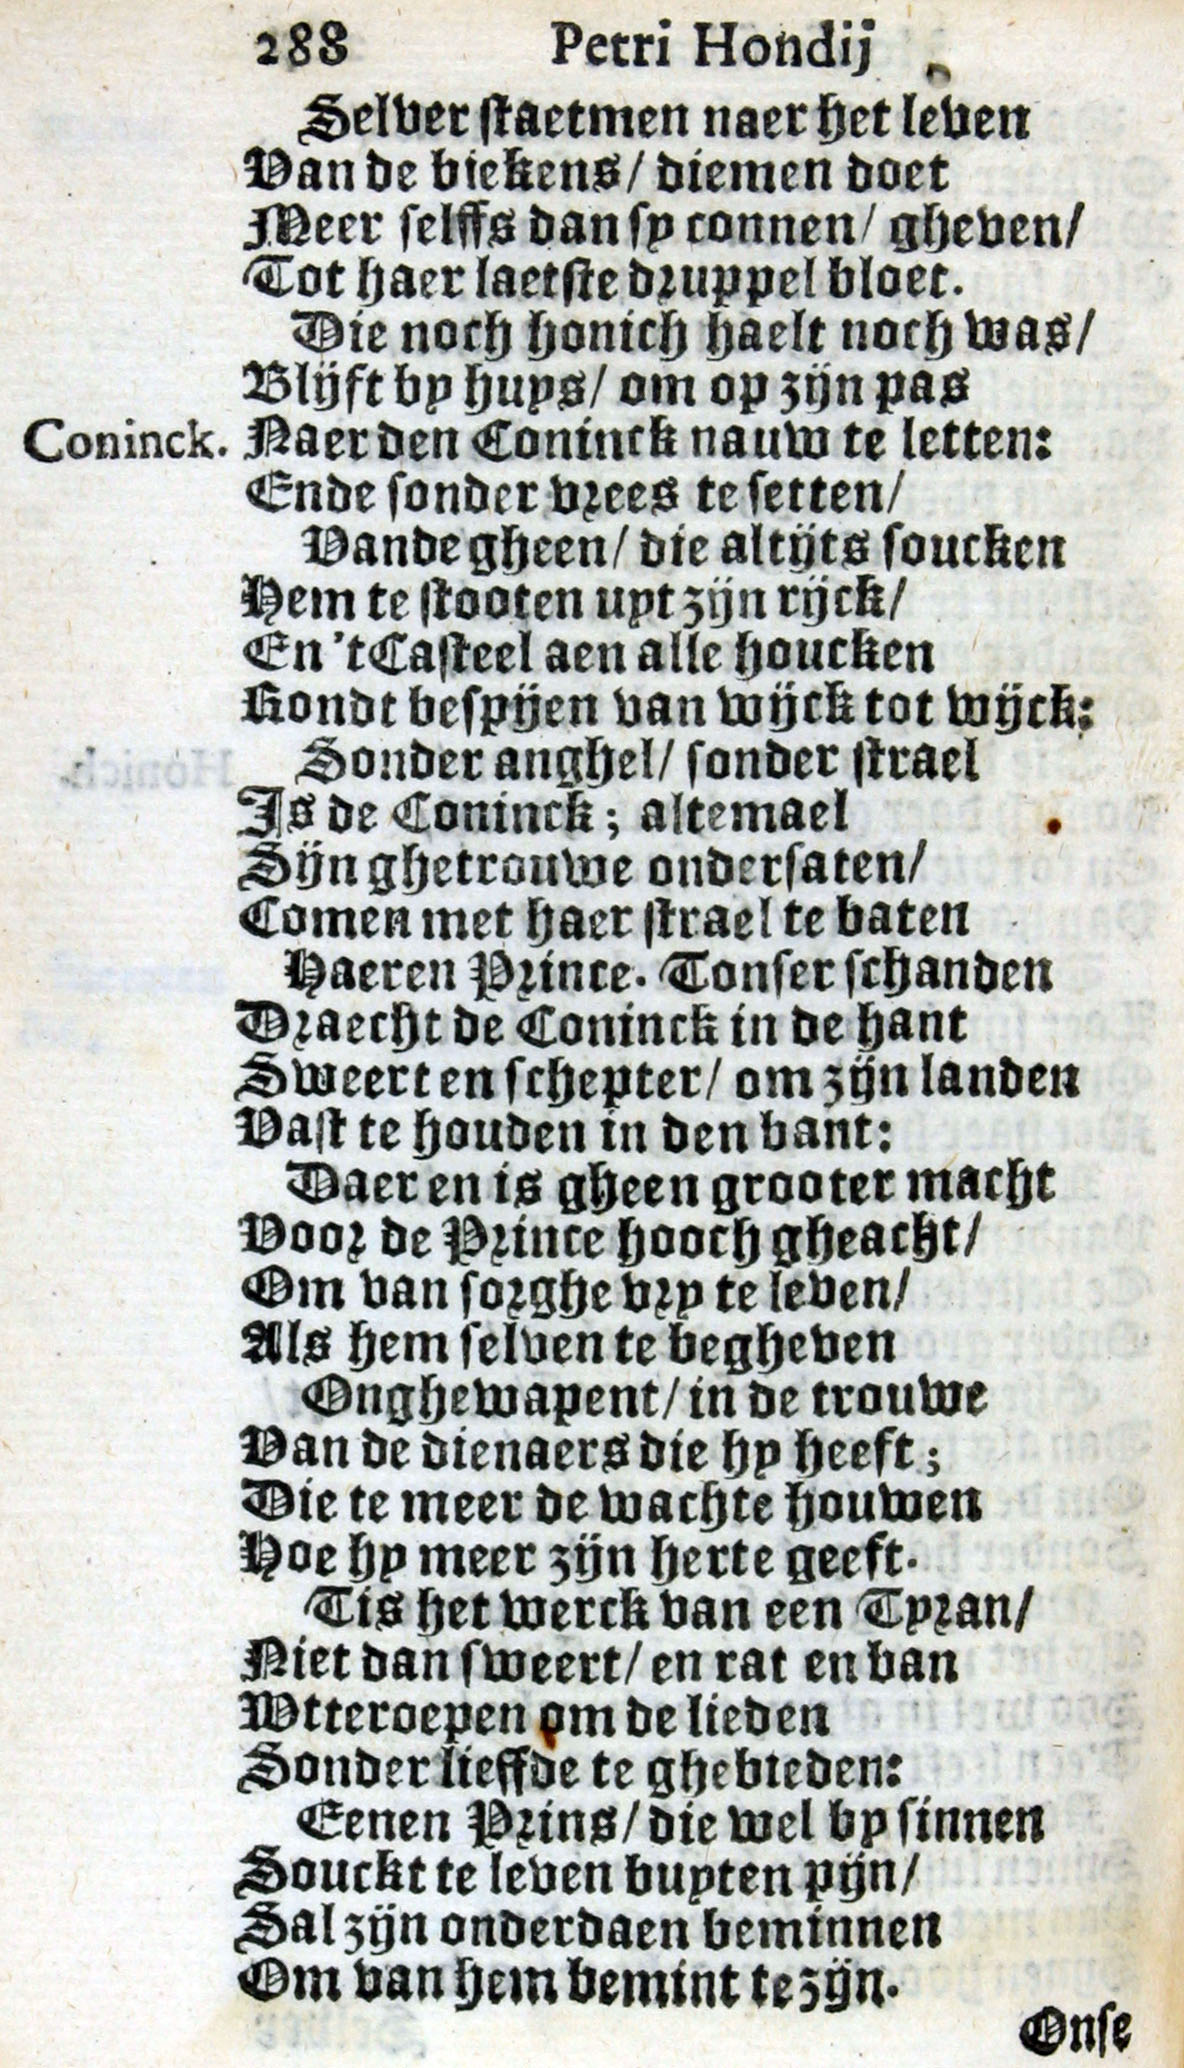 288 Petri Hondij
Selver staetmen naer het leven
Van de biekens/ diemen doet
Meer selffs dan sy connen/ gheven/
Tot haer laetste druppel bloet.
Die noch honich haelt noch was/
Blijft by huys/ om op zijn pas
Coninck. Naer den Coninck nauw te letten:
Ende sonder vrees te setten/
Vande gheen/ die altijts soucken
Hem te stooten uyt zijn rijck/
En 't Casteel aen alle houcken
Rondt bespijen van wijck tot wijck:
Sonder anghel/ sonder strael
Is de Coninck; altemael
Sijn ghetrouwe ondersaten/
Comen met haer strael te baten
Haeren Prince. Tonser schanden
Draecht de Coninck in de hant
Sweert en schepter/ om zijn landen
Vast te houden in den bant:
Daer en is gheen grooter macht
Voor de Prince hooch gheacht/
Om van sorghe vry te leven/
Als hem selven te begheven
Onghewapent/ in de trouwe
Van de dienaers die hy heeft;
Die te meer de wachte houwen
Hoe hy meer zijn herte geeft.
Tis het werck van een Tyran/
Niet dan sweert/ en rat en ban
Wtteroepen om de lieden
Sonder lieffde te ghebieden:
Eenen Prins/ die wel by sinnen
Souckt te leven buyten pijn/
Sal zijn onderdaen beminnen
Om van hem bemint te zijn.
Onse